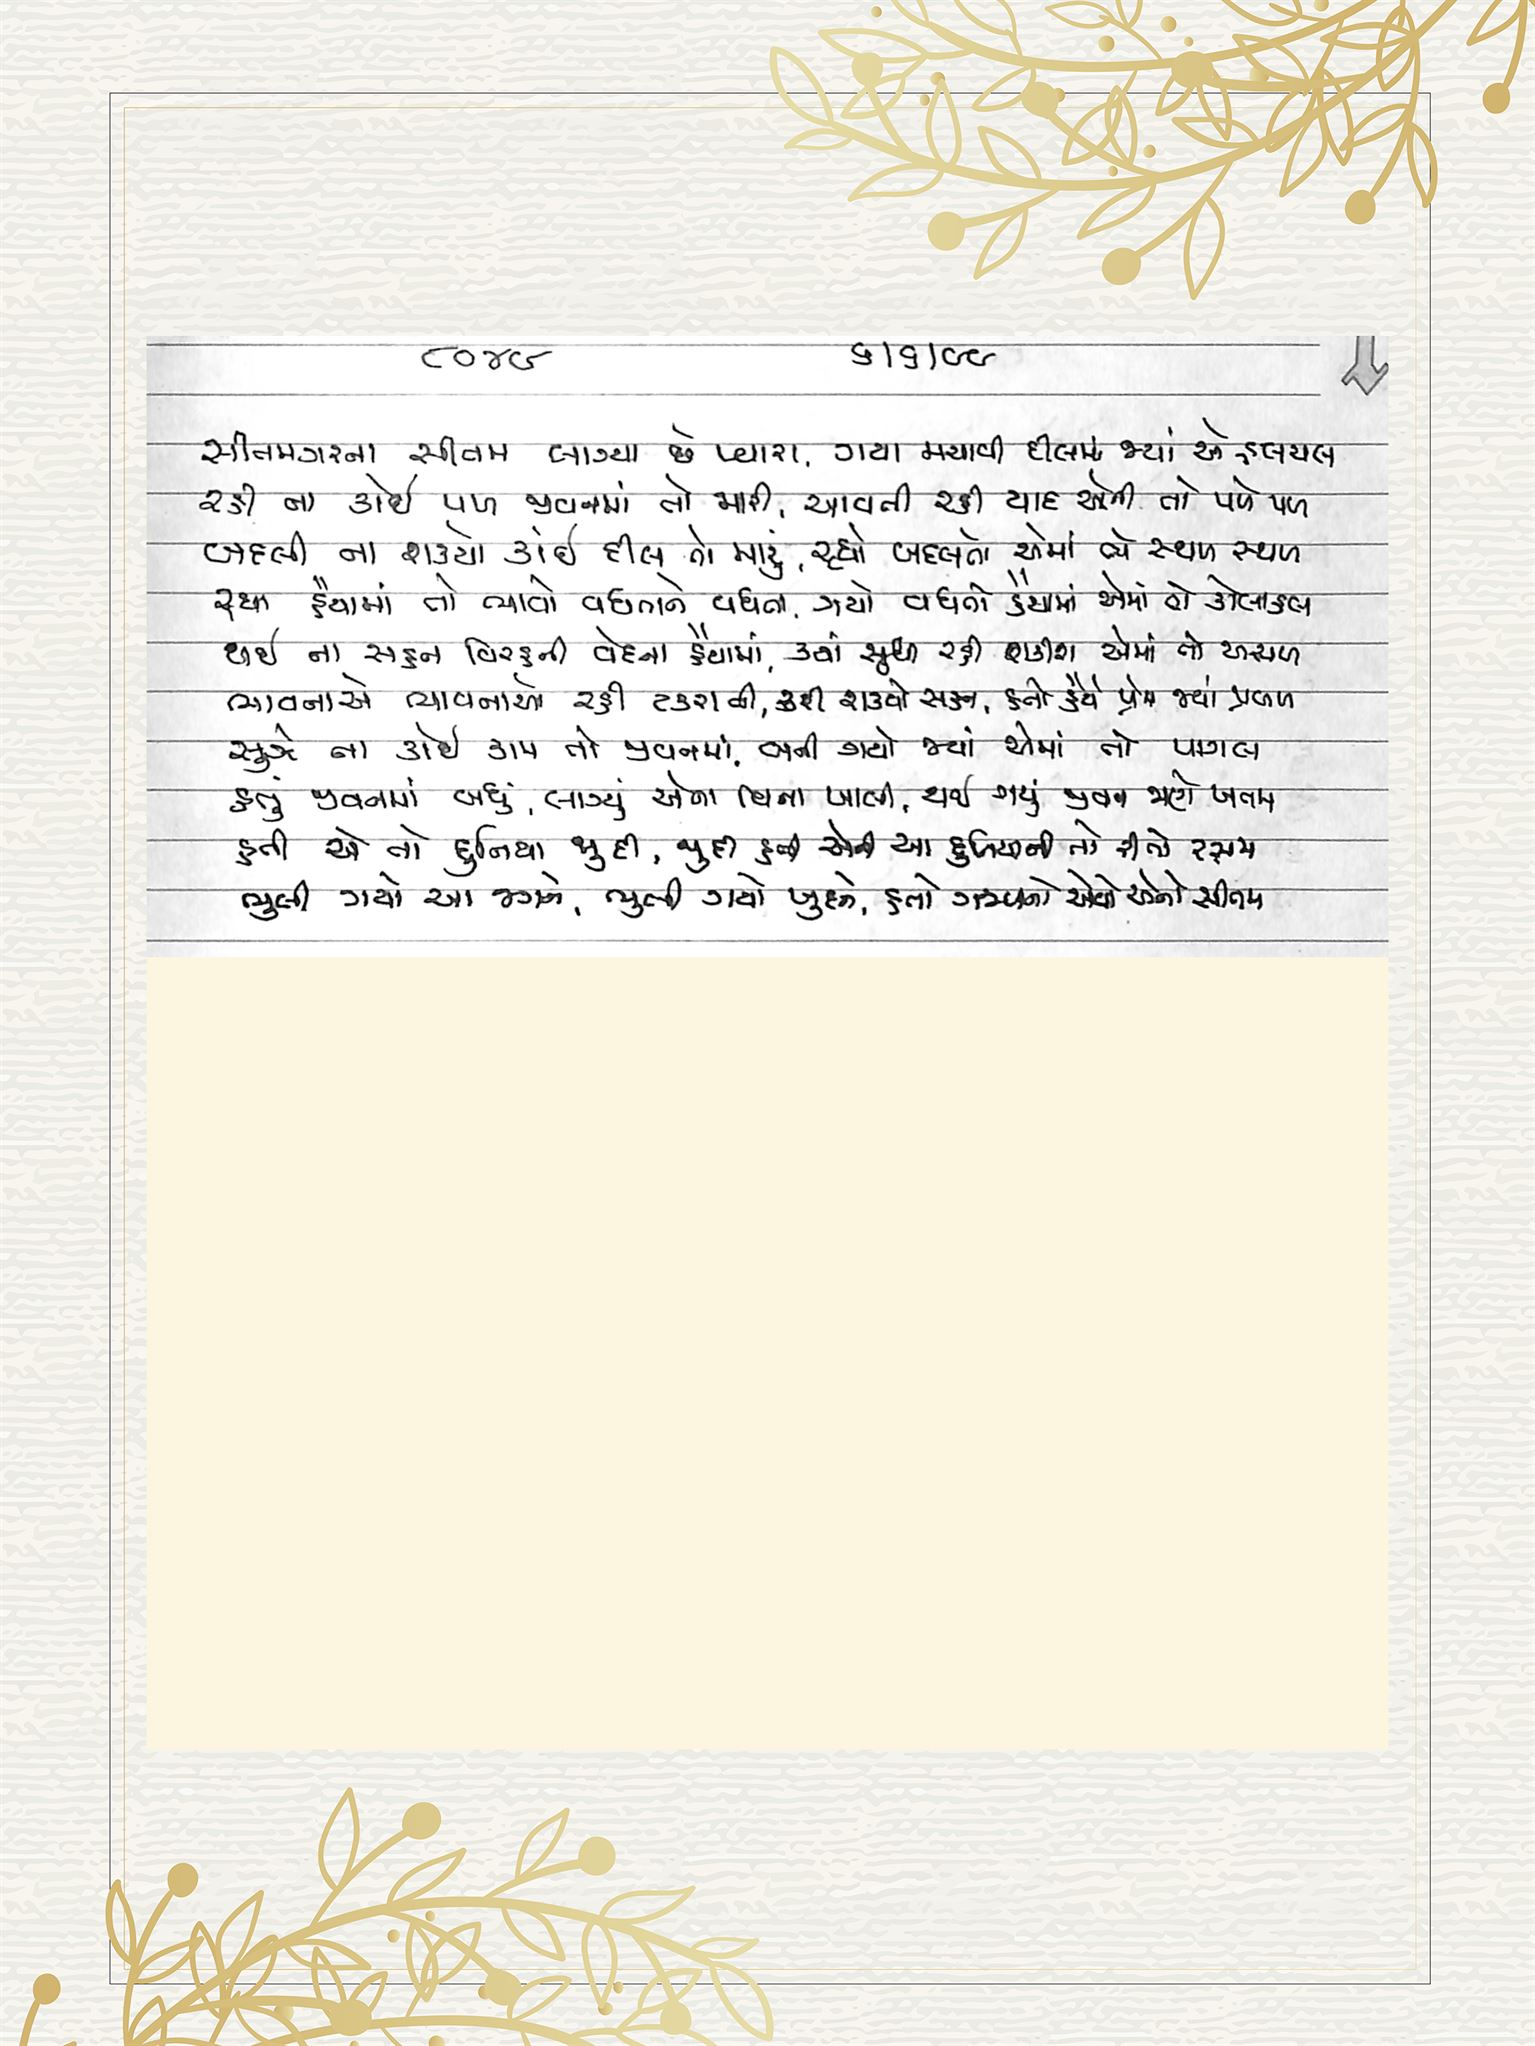 ૮૦૪૯ ૬/૬/૯૯
સીતમગરના સીતમ લાગ્યા છે પ્યારા, ગયા મચાવી દીલમાં જ્યાં એ હલચલ
રહી ના કોઈ પળ જીવનમાં તો મારી, આવતી રહી યાદ એની તો પળે પળ
બદલી ના શક્યો કાંઈ દીલ તો મારું, રહ્યો બદલતો એમાં એ સ્થળ સ્થળ
રહ્યા હૈયામાં તો ભાવો વધતાને વધતા, ગયો વધતો હૈયામાં એમાં તો કોલાહલ
થાઈ ના સહન વિરહની વેદના હૈયામાં, ક્યાં સુધી રહી શકીશ એમાં તો અચળ
ભાવનાએ ભાવનાઓ રહી ટકરાતી, કરી શક્યો સહન, હતો હૈયે પ્રેમ જ્યાં પ્રબળ
સુઝે ના કોઈ કામ તો જીવનમાં, બની ગયો જ્યાં એમાં તો પાગલ
હતું જીવનમાં બધું, લાગ્યું એના વિના ખાલી, થઈ ગયું જીવન જાણે ખતમ
હતી એ તો દુનિયા જુદી, જુદી હતી એની આ દુનિયાની તો રીતો રસમ
ભુલી ગયો આ જગને, ભુલી ગયો ખુદને, હતો ગજબનો એવો એનો સીતમ